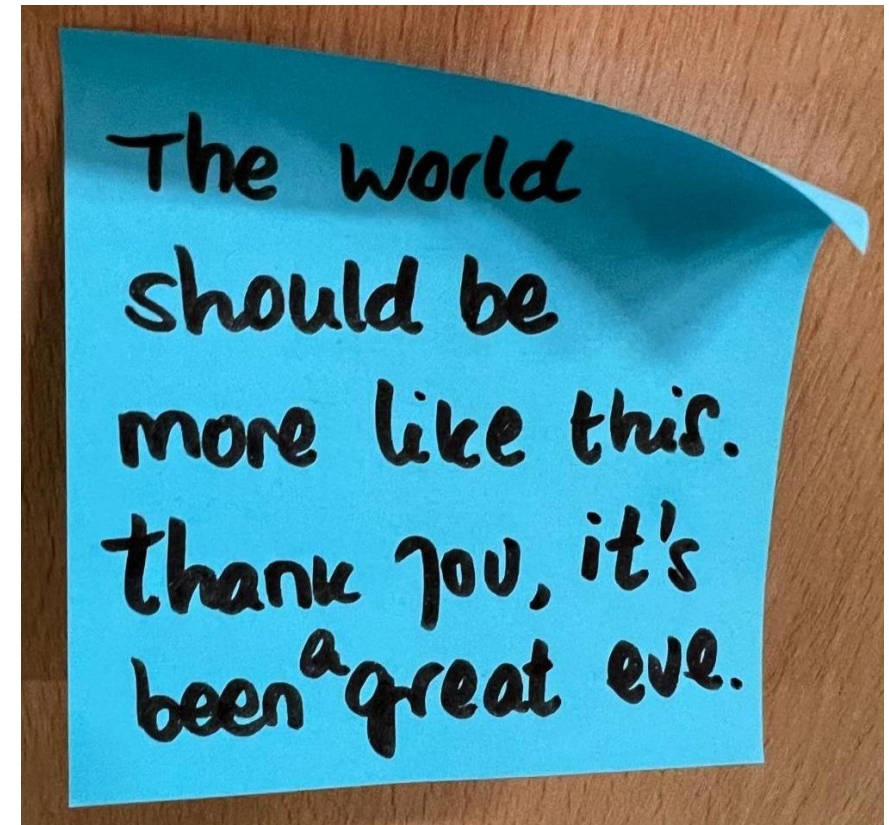 The world
should be
more like this.
thank you, it's
been a great eve.